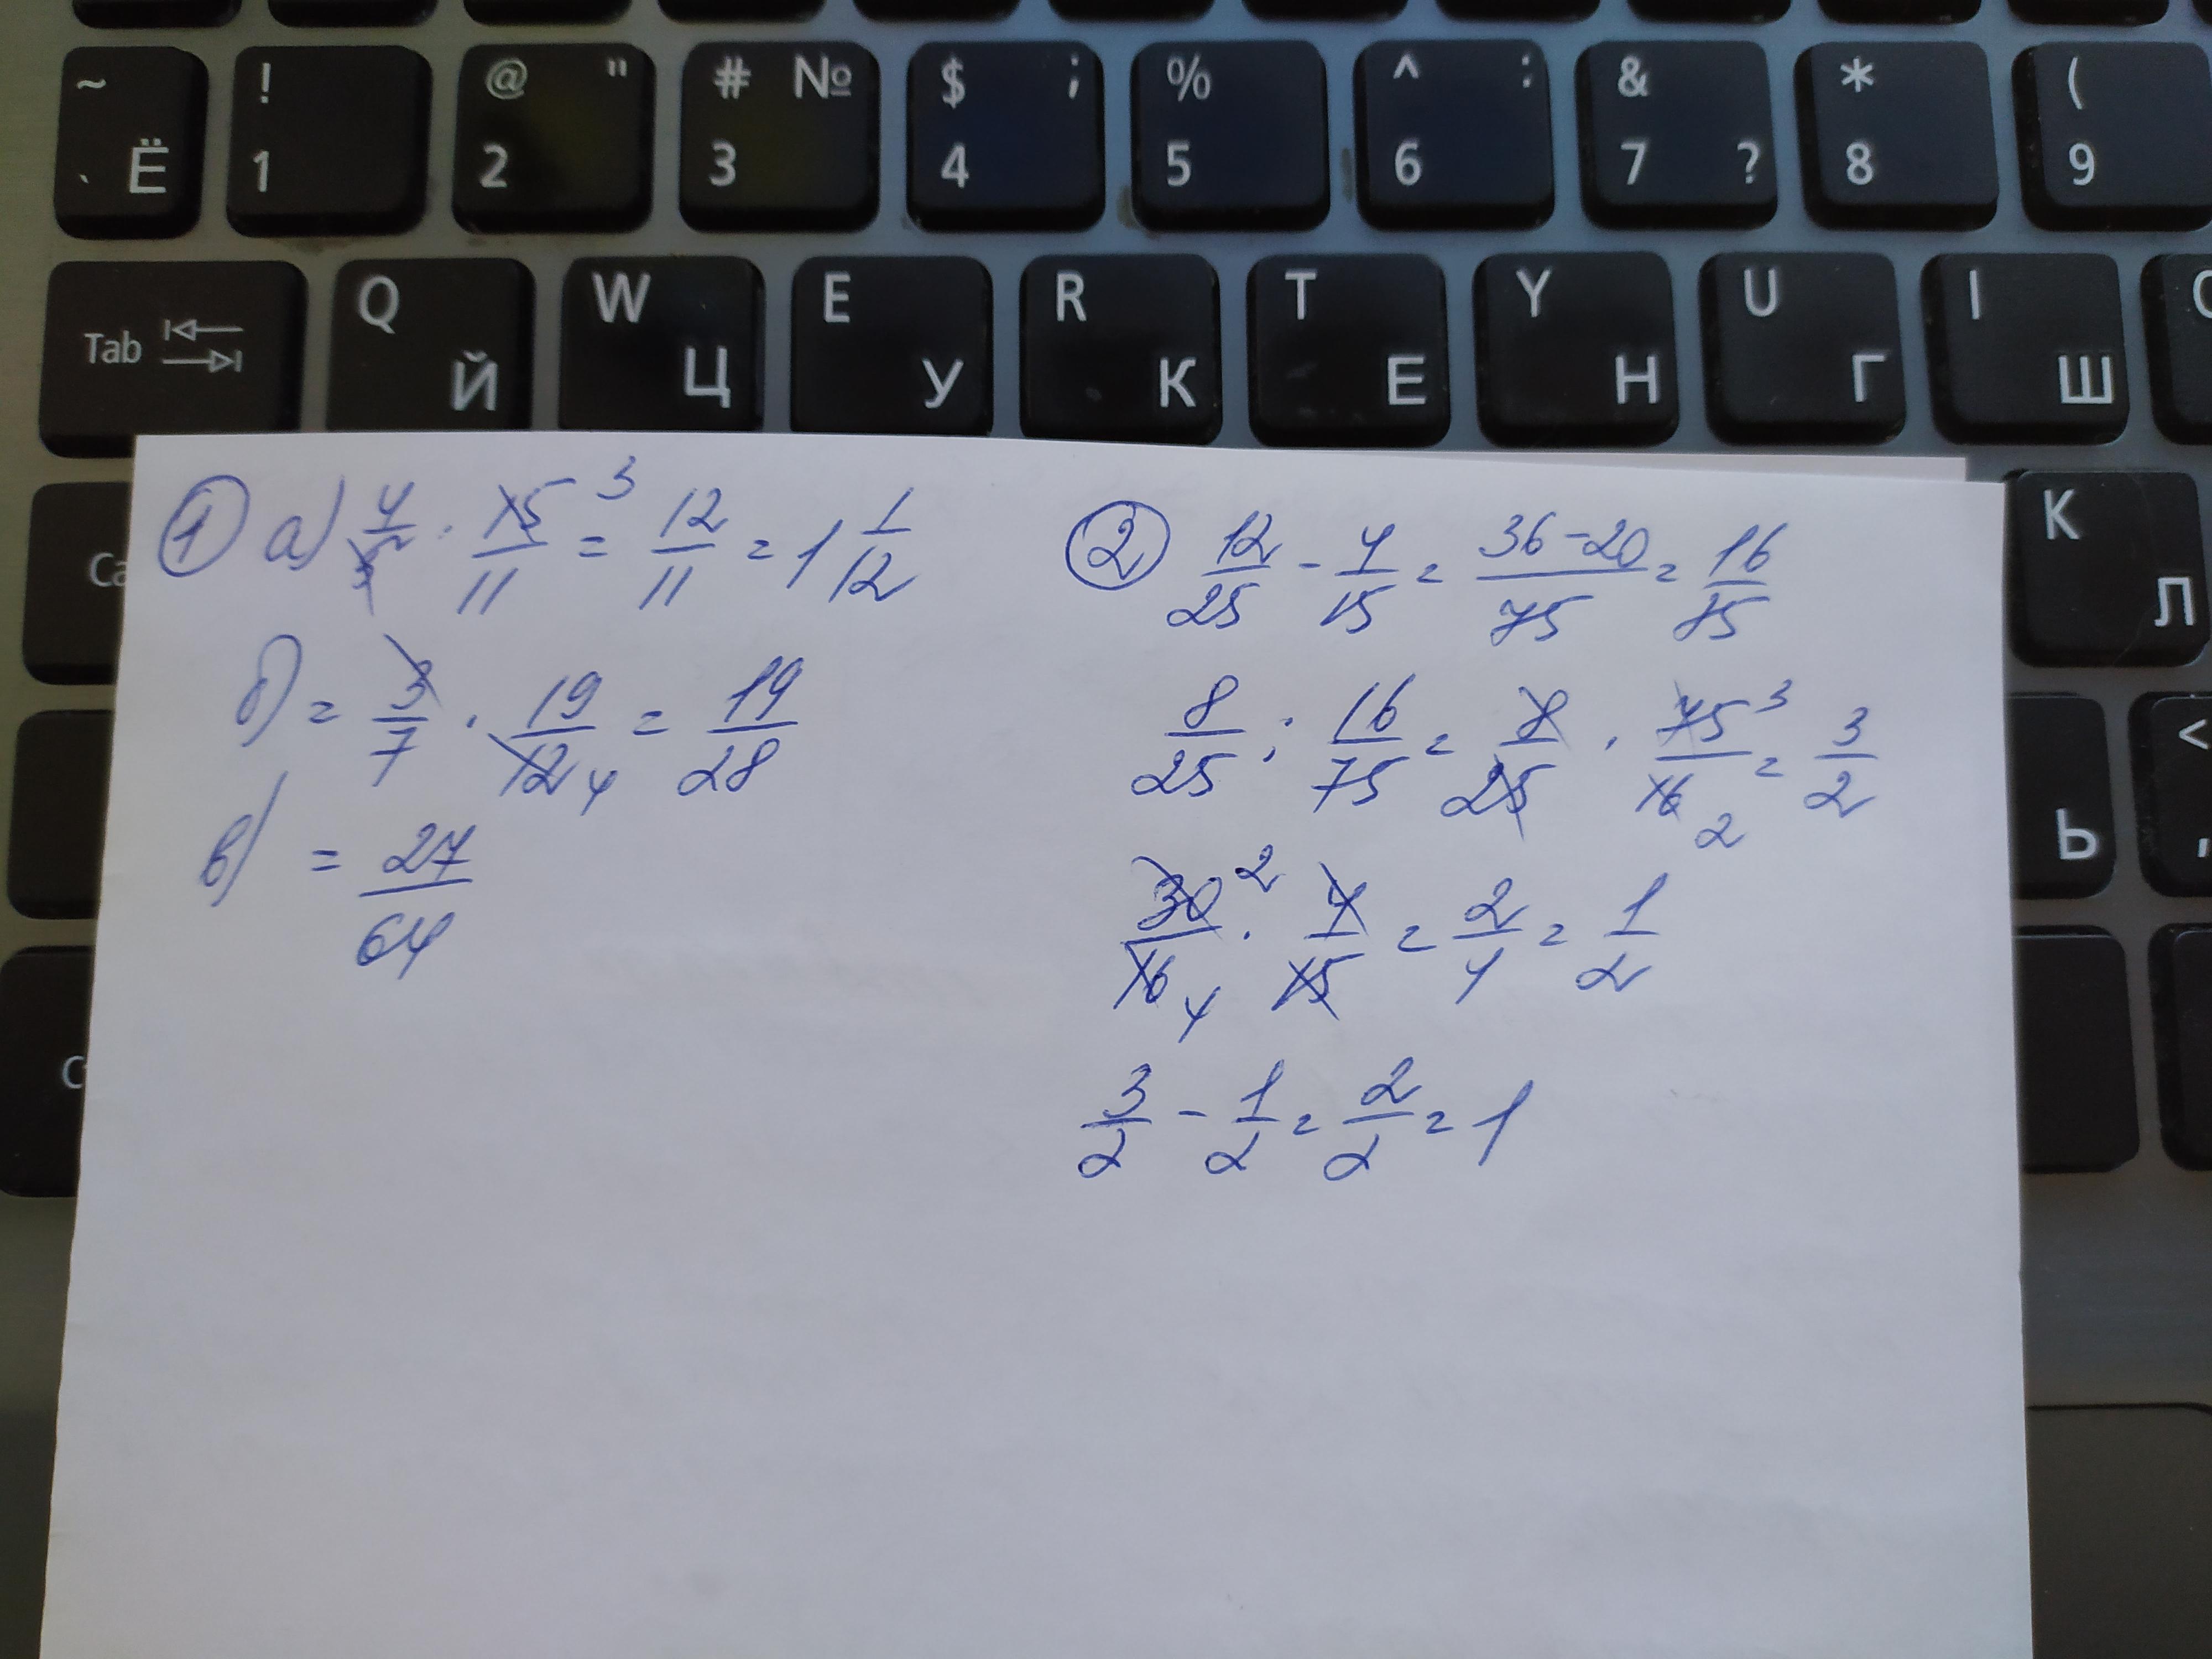 ~ Ё `
! 1
@ " 2
# № 3
$ ; 4
% 5
^ : 6
& 7 ?
* 8
( 9
Tab
Q Й
W Ц
E У
R К
T Е
Y Н
U Г
I Ш
K Л
Ь
<
,
① а) 4/5 · 15/11 ³ = 12/11 = 1 1/12
б) = 3/7 · 19/12 4 = 19/28
в) = 27/64
② 12/25 - 4/15 = 36-20/75 = 16/75
8/25 : 16/75 = 8/25 · 75³/16 2 = 3/2
30²/16 4 · 4/15 = 2/4 = 1/2
3/2 - 1/2 = 2/2 = 1